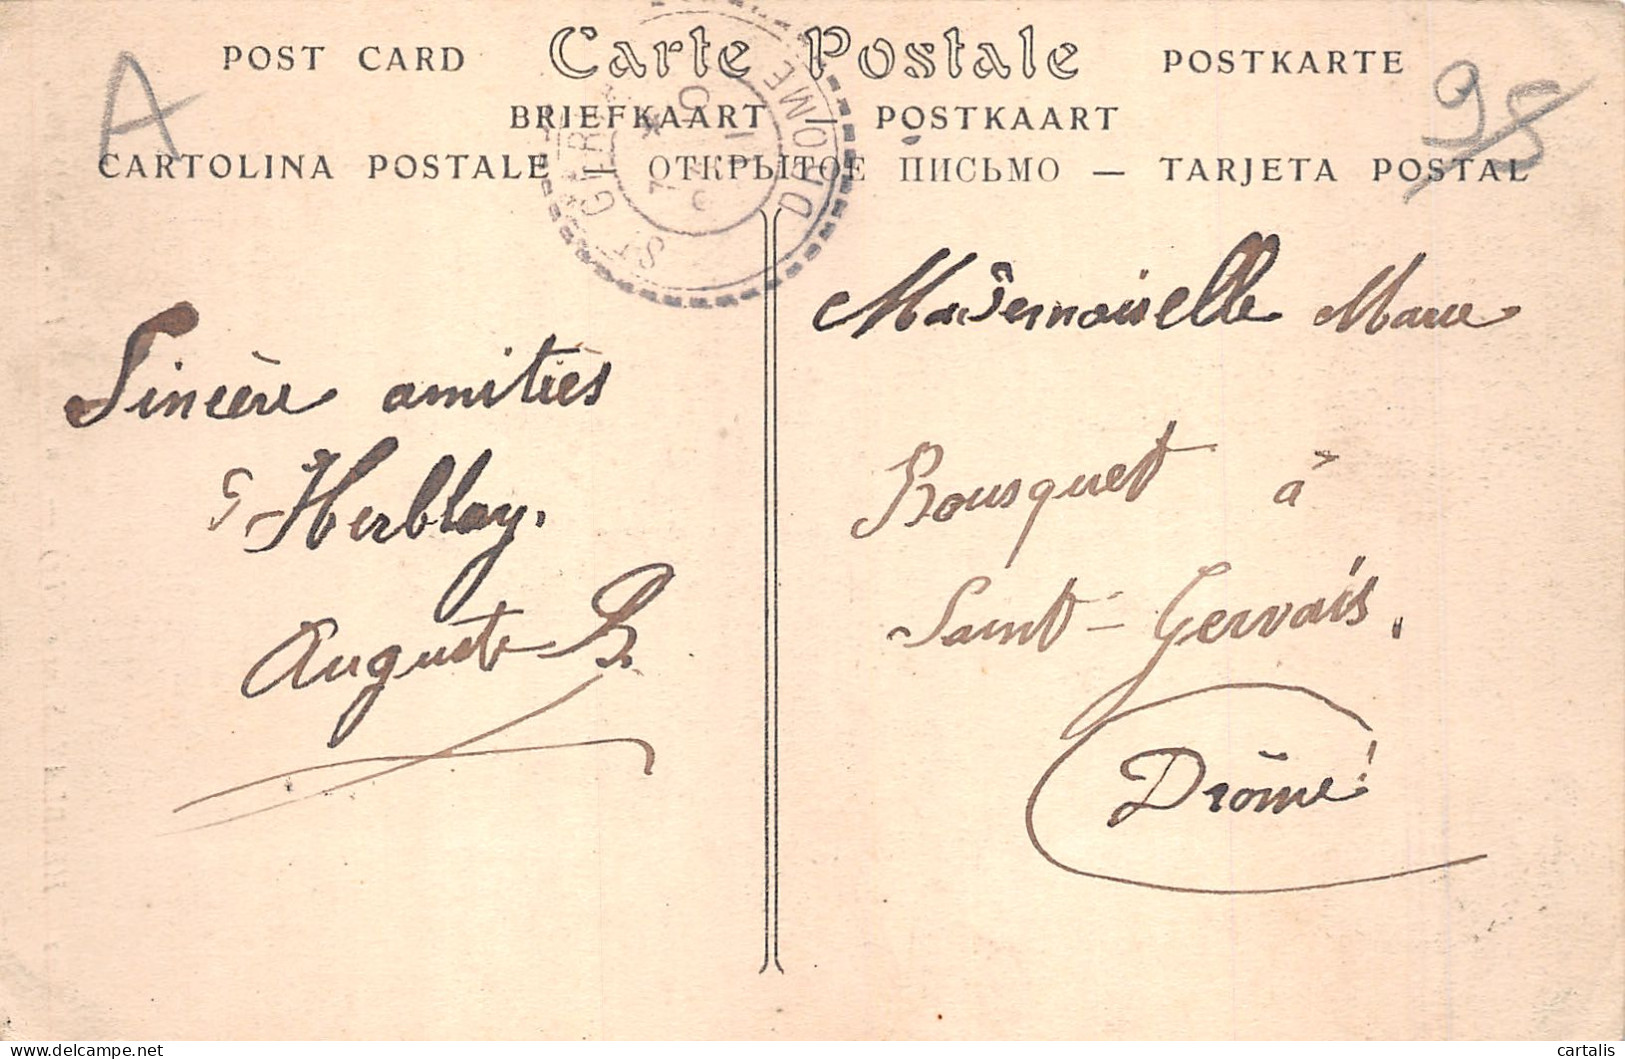 A
98
POST CARD Carte Postale POSTKARTE
BRIEFKAART — POSTKAART
CARTOLINA POSTALE — ОТКРЫТОЕ ПИСЬМО — TARJETA POSTAL
ST GER
DROME
Sincère amitiés
Herblay.
Auguste B.
Mademoiselle Marie
Bousquet à
Saint-Gervais.
Drôme
cartalis